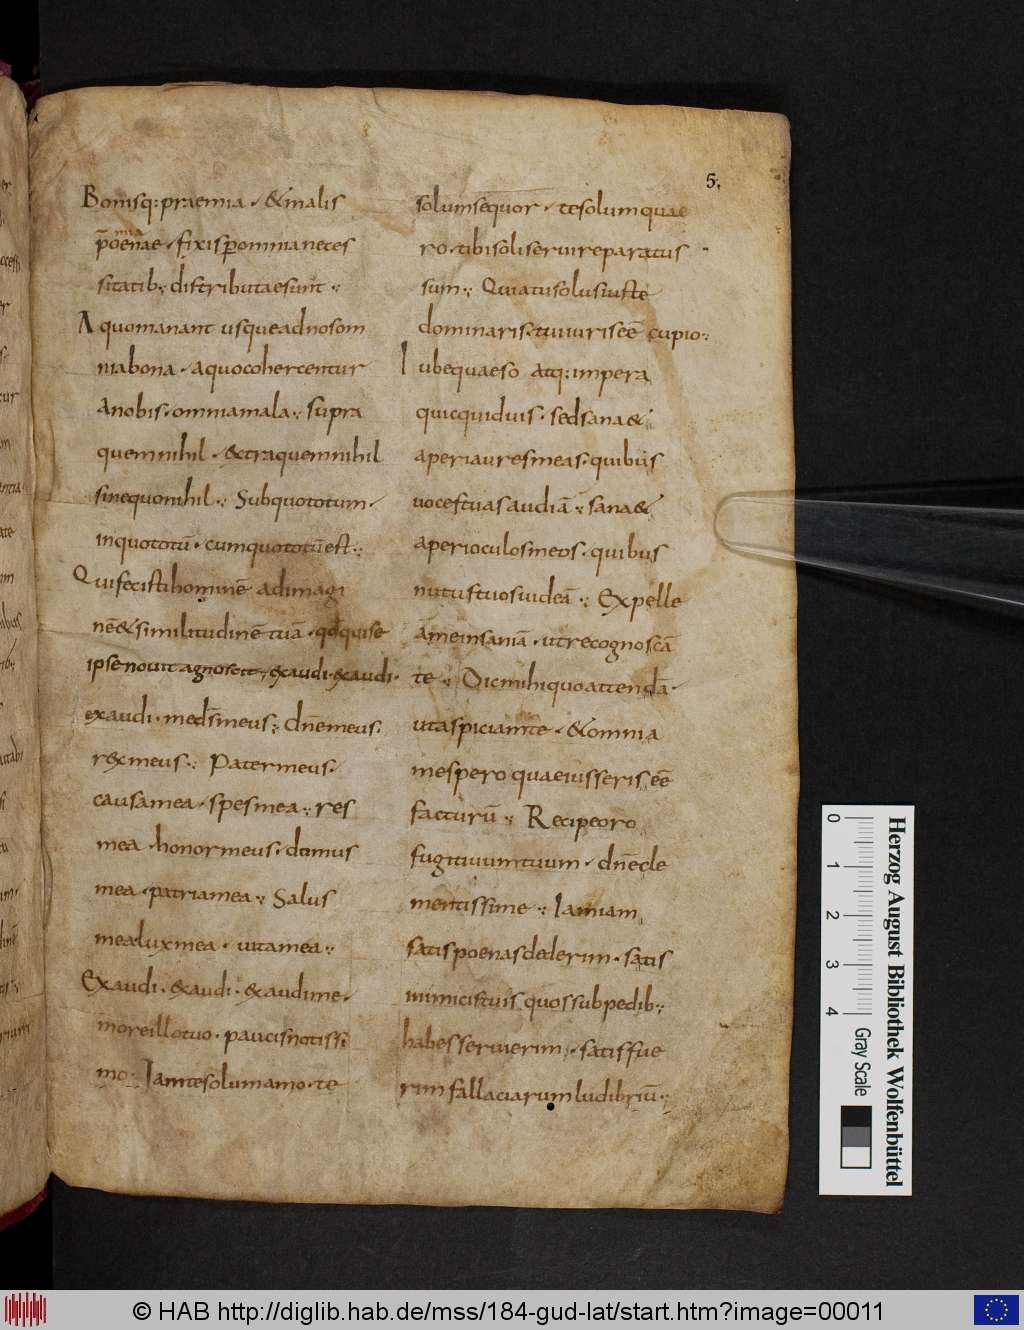 5.
Bonisq: praemia · & malis
p̄oenae · fixis p omnia neces
mia
sitatib; distributae sunt ·,·
A quo manant usque ad nos om
nia bona · a quo cohercentur
a nobis · omnia mala ·,· supra
quem nihil · & extra quem nihil
sine quo nihil ·,· Sub quo totum ·
in quo totū · cum quo totū est ·,·
Qui fecisti hominē ad imagi
nē & similitudinē tuā · qd qui se
ipse novit agnoscit, exaudi · exaudi ·
exaudi · me d̄s meus ·,· dn̄e meus ·
rex meus ·,· Pater meus ·
causa mea · spes mea ·,· res
mea · honor meus · domus
mea · patria mea ·,· Salus
mea lux mea · uita mea ·,·
Exaudi · exaudi · exaudi me ·
more illo tuo · paucis notissi
mo · Iam te solum amo · te
solum sequor · te solum quae
ro · tibi soli seruire paratus
sum ·,· Quia tu solus iuste
dominaris · tui iuris eē cupio ·,·
Iube quaeso atq: impera
quicquid uis · sed sana &
aperi aures meas · quibus
uoces tuas audiā ·,· sana &
aperi oculos meos · quibus
nutus tuos uideā ·,· Expelle
a me insaniā · ut recognoscā
te ·,· Dic mihi quo attendā ·
ut aspiciam te · & omnia
me spero quae iusseris eē
facturū ·,· Recipe oro
fugitiuum tuum · dn̄e cle
mentissime ·,· Iam iam
satis poenas dederim · satis
inimicis tuis quos sub pedib;
habes seruierim · satis fue
rim fallaciarum ludibriū ·,·
0 1 2 3 4
Herzog August Bibliothek Wolfenbüttel
Gray Scale
© HAB http://diglib.hab.de/mss/184-gud-lat/start.htm?image=00011